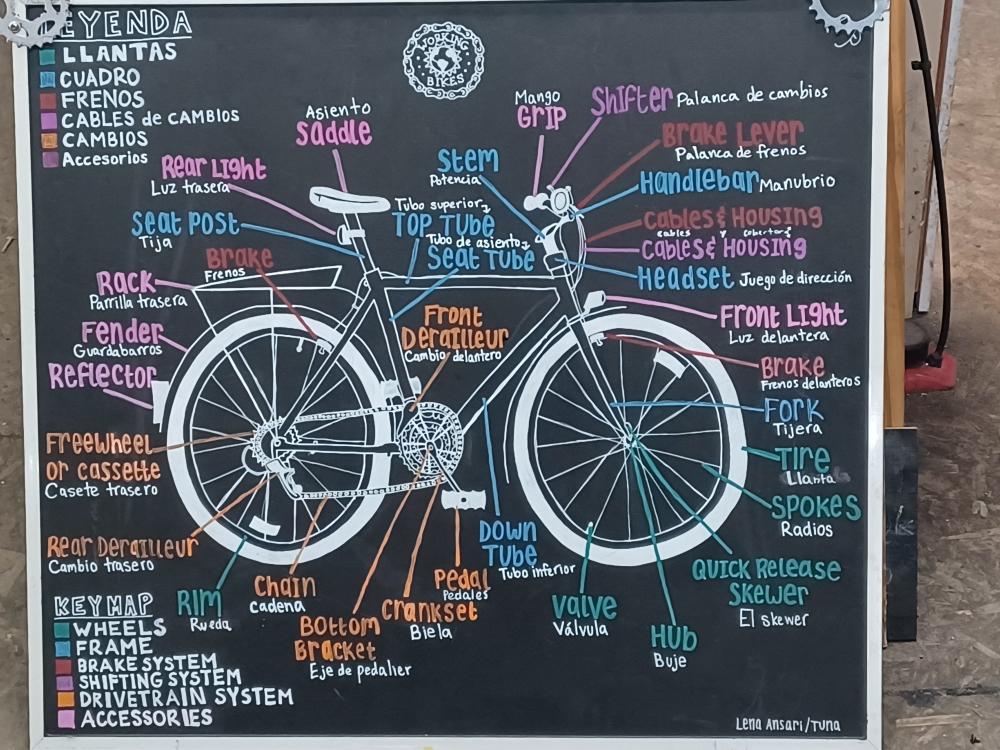 LEYENDA
LLANTAS
CUADRO
FRENOS
CABLES de CAMBIOS
CAMBIOS
Accesorios
WORKING
BIKES
Asiento
Saddle
Mango
GRIP
Shifter Palanca de cambios
Brake Lever
Palanca de frenos
Rear Light
Luz trasera
Stem
Potencia
Handlebar Manubrio
Seat Post
Tija
Tubo superior
TOP TUBE
Tubo de asiento
Seat TUBE
Cables & Housing
cables y cobertors
Cables & Housing
Brake
Frenos
Headset Juego de dirección
Rack
Parrilla trasera
Front
Derailleur
Cambio delantero
Front Light
Luz delantera
Fender
Guardabarros
Brake
Frenos delanteros
Reflector
Fork
Tijera
Freewheel
or cassette
Casete trasero
Tire
Llanta
Spokes
Radios
Rear Derailleur
Cambio trasero
Down
Tube
Tubo inferior
Chain
Cadena
Pedal
Pedales
Quick Release
Skewer
El skewer
Rim
Rueda
Bottom
Bracket
Eje de pedalier
Crankset
Biela
Valve
Válvula
Hub
Buje
KEY MAP
WHEELS
FRAME
BRAKE SYSTEM
SHIFTING SYSTEM
DRIVETRAIN SYSTEM
ACCESSORIES
Lena Ansari/Tuna